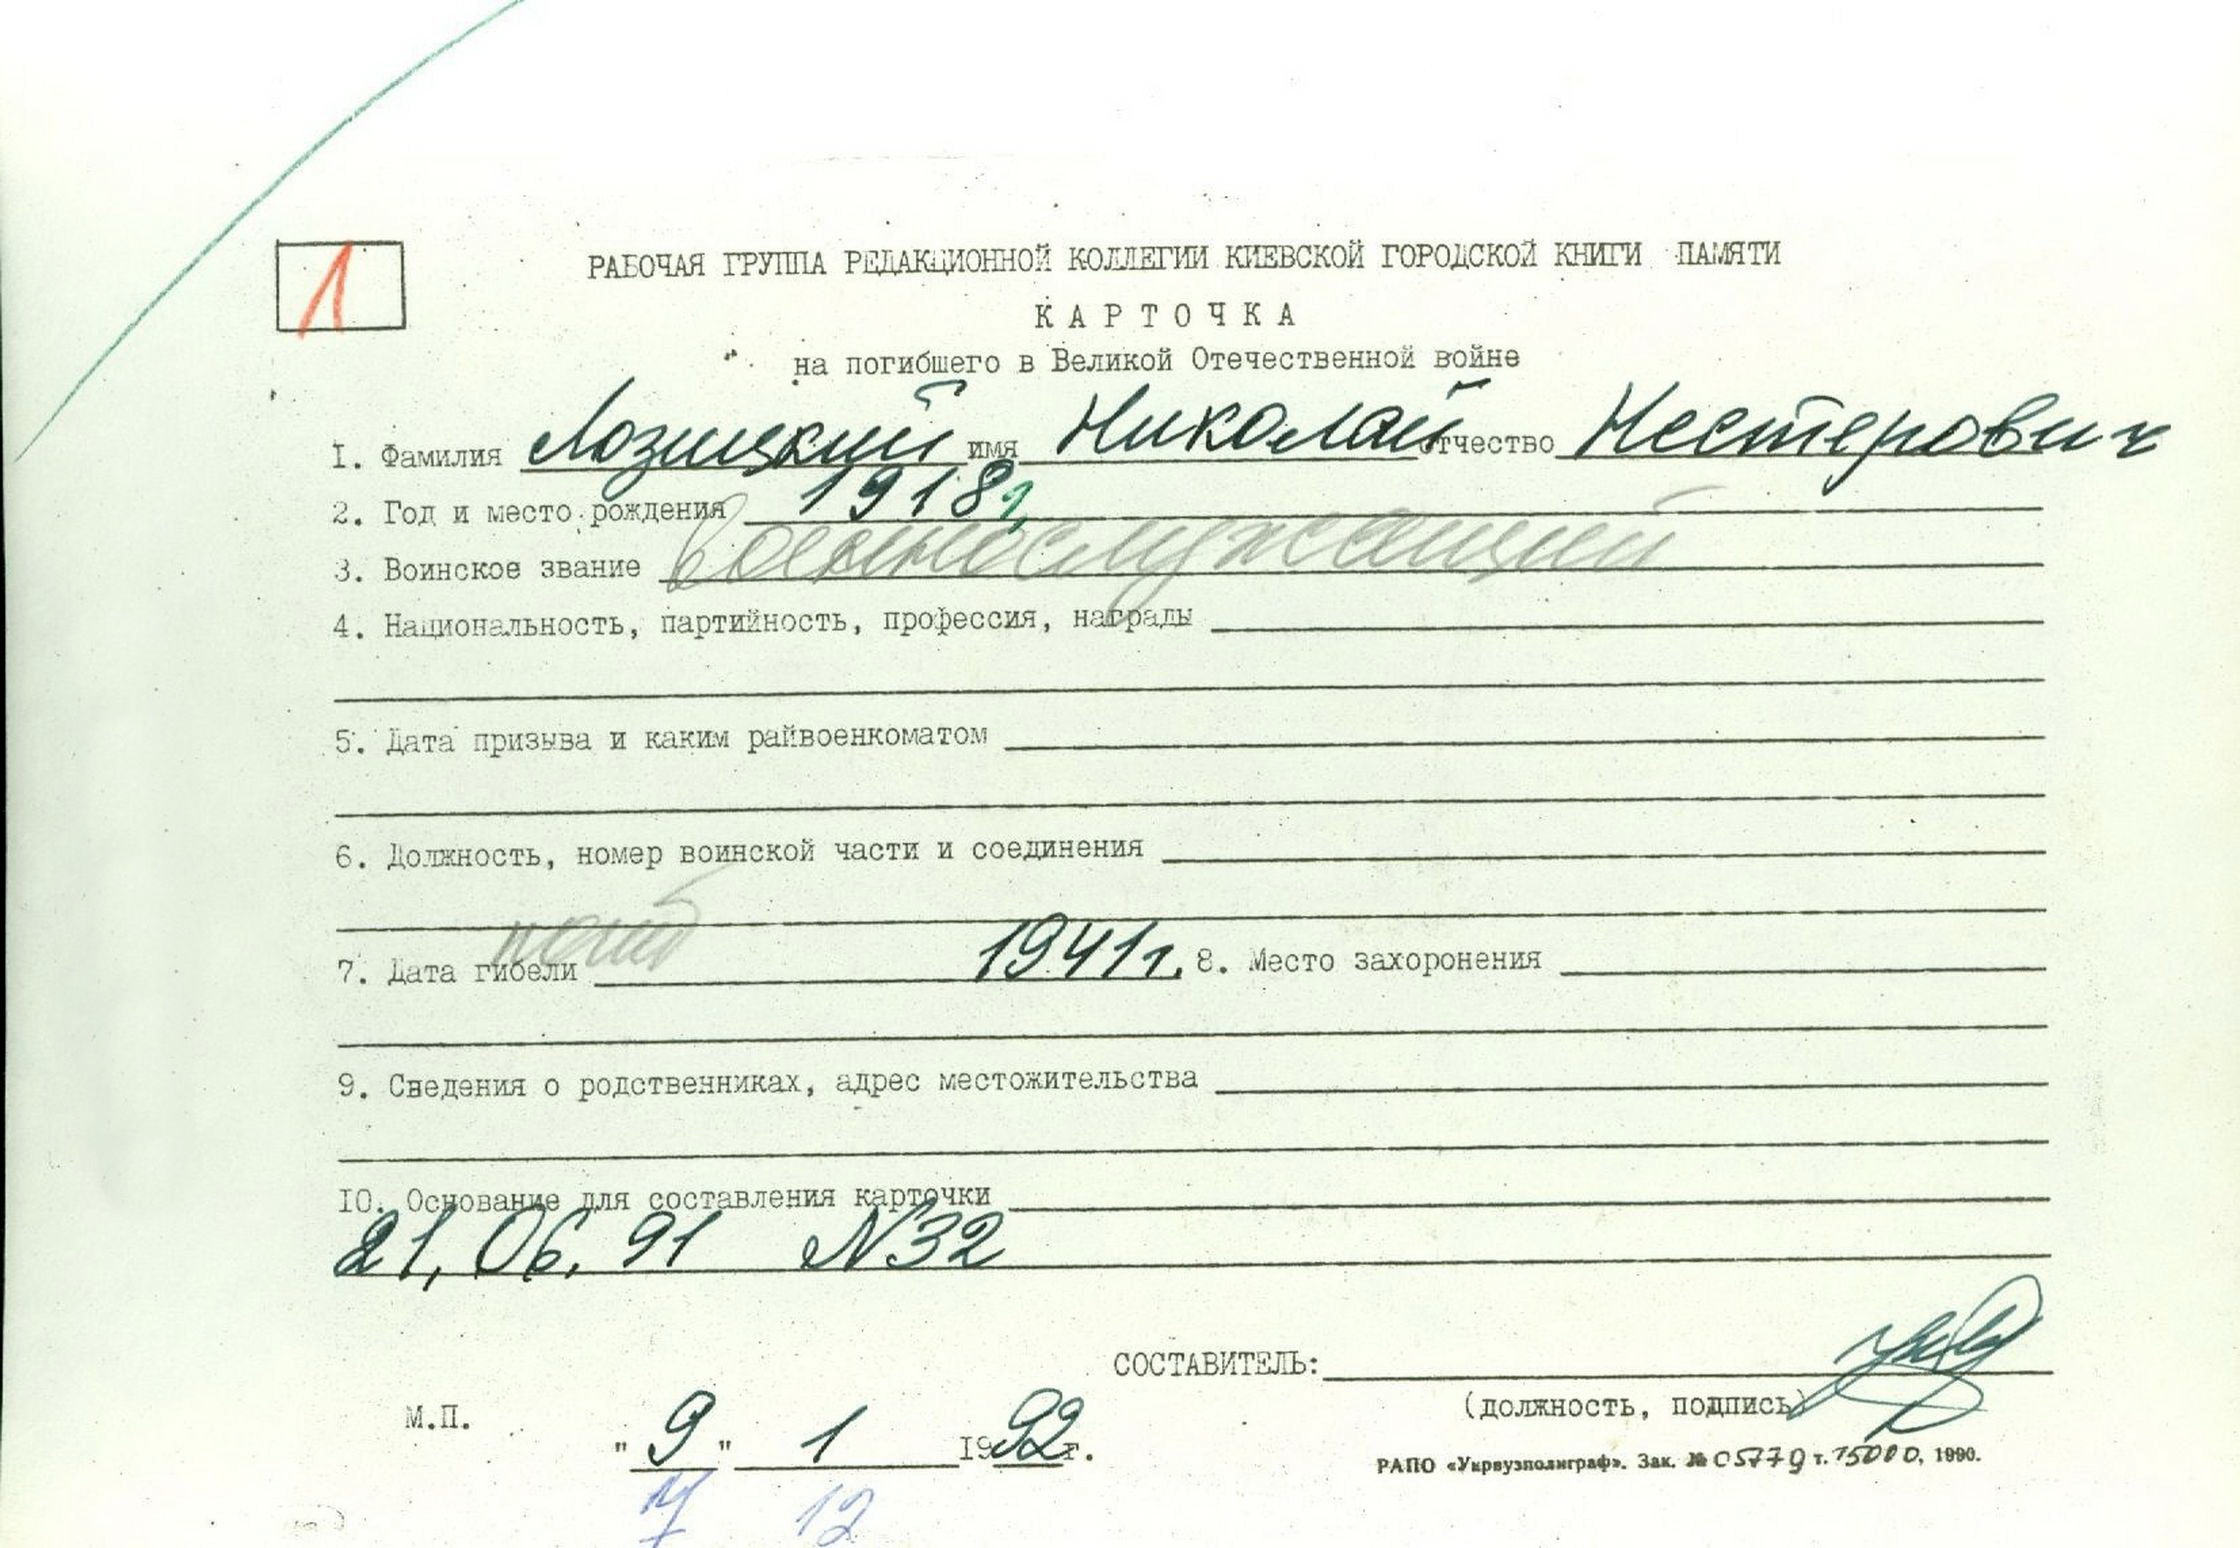 1
РАБОЧАЯ ГРУППА РЕДАКЦИОННОЙ КОЛЛЕГИИ КИЕВСКОЙ ГОРОДСКОЙ КНИГИ ПАМЯТИ
КАРТОЧКА
на погибшего в Великой Отечественной войне
I. Фамилия Лозицкий имя Николай отчество Нестерович
2. Год и место рождения 1918г.
3. Воинское звание военнослужащий
4. Национальность, партийность, профессия, награды
5. Дата призыва и каким райвоенкоматом
6. Должность, номер воинской части и соединения
погиб
7. Дата гибели 1941г. 8. Место захоронения
9. Сведения о родственниках, адрес местожительства
IO. Основание для составления карточки
21.06.91 N32
СОСТАВИТЕЛЬ:
(должность, подпись)
М.П.
"9" 1 1992г.
РАПО «Укрвузполиграф». Зак. № 05779 т. 15000, 1990.
7 12